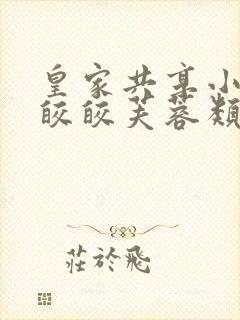 皇家共享小
皎皎芙蓉類
莊於飛